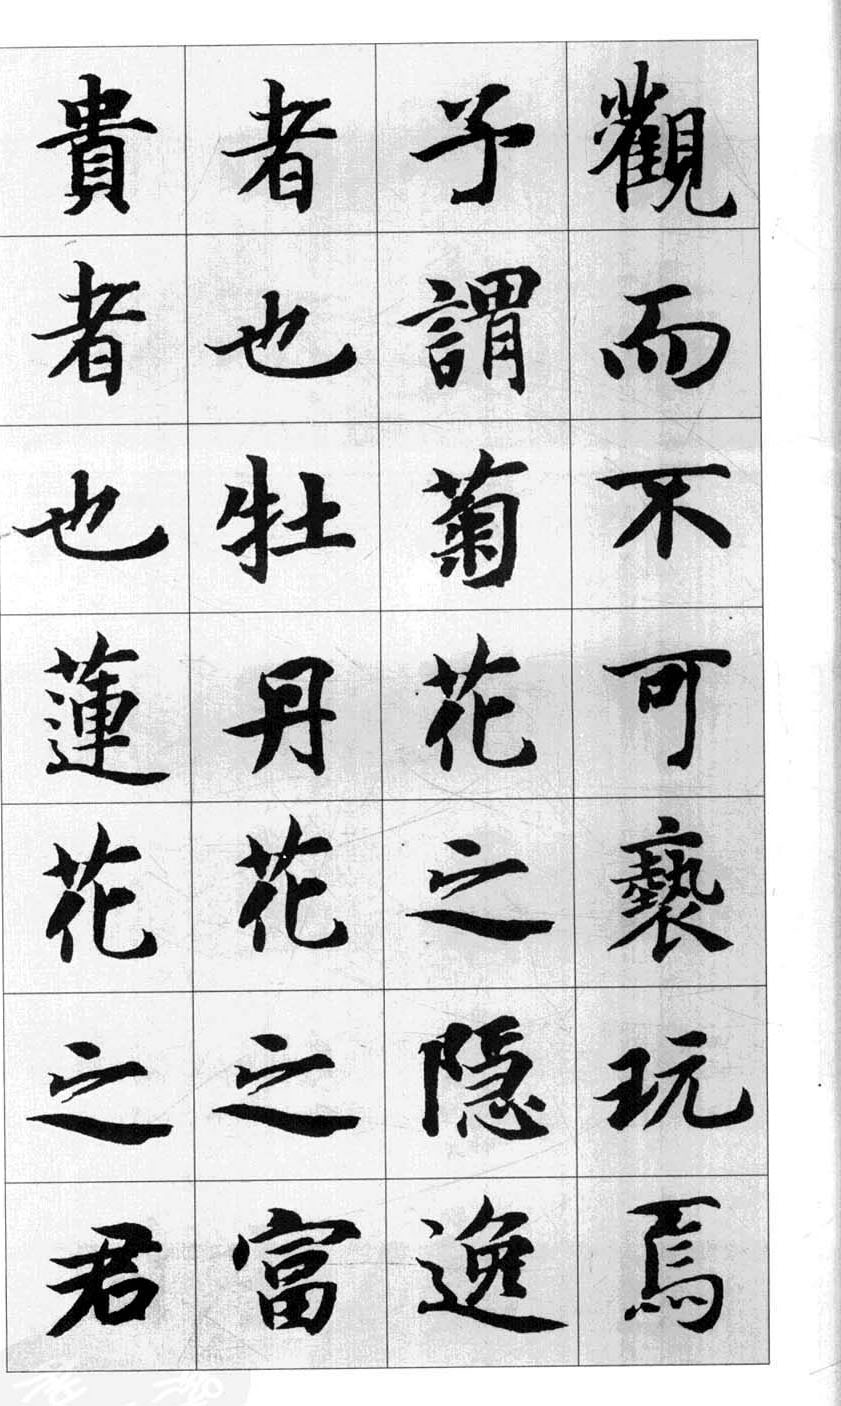 觀而不可褻玩焉
予謂菊花之隱逸
者也牡丹花之富
貴者也蓮花之君